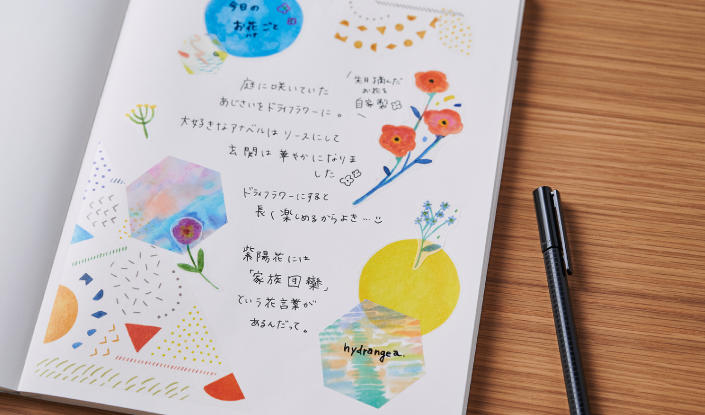 今日の
お花ごと
摘んだ
お花を
自家製
庭に咲いていた
あじさいをドライフラワーに。
大好きなアナベルは リースにして
玄関は華やかになりま
した
ドライフラワーにすると
長く楽しめるからよき…
紫陽花には
「家族団欒」
という花言葉が
あるんだって。
hydrangea.